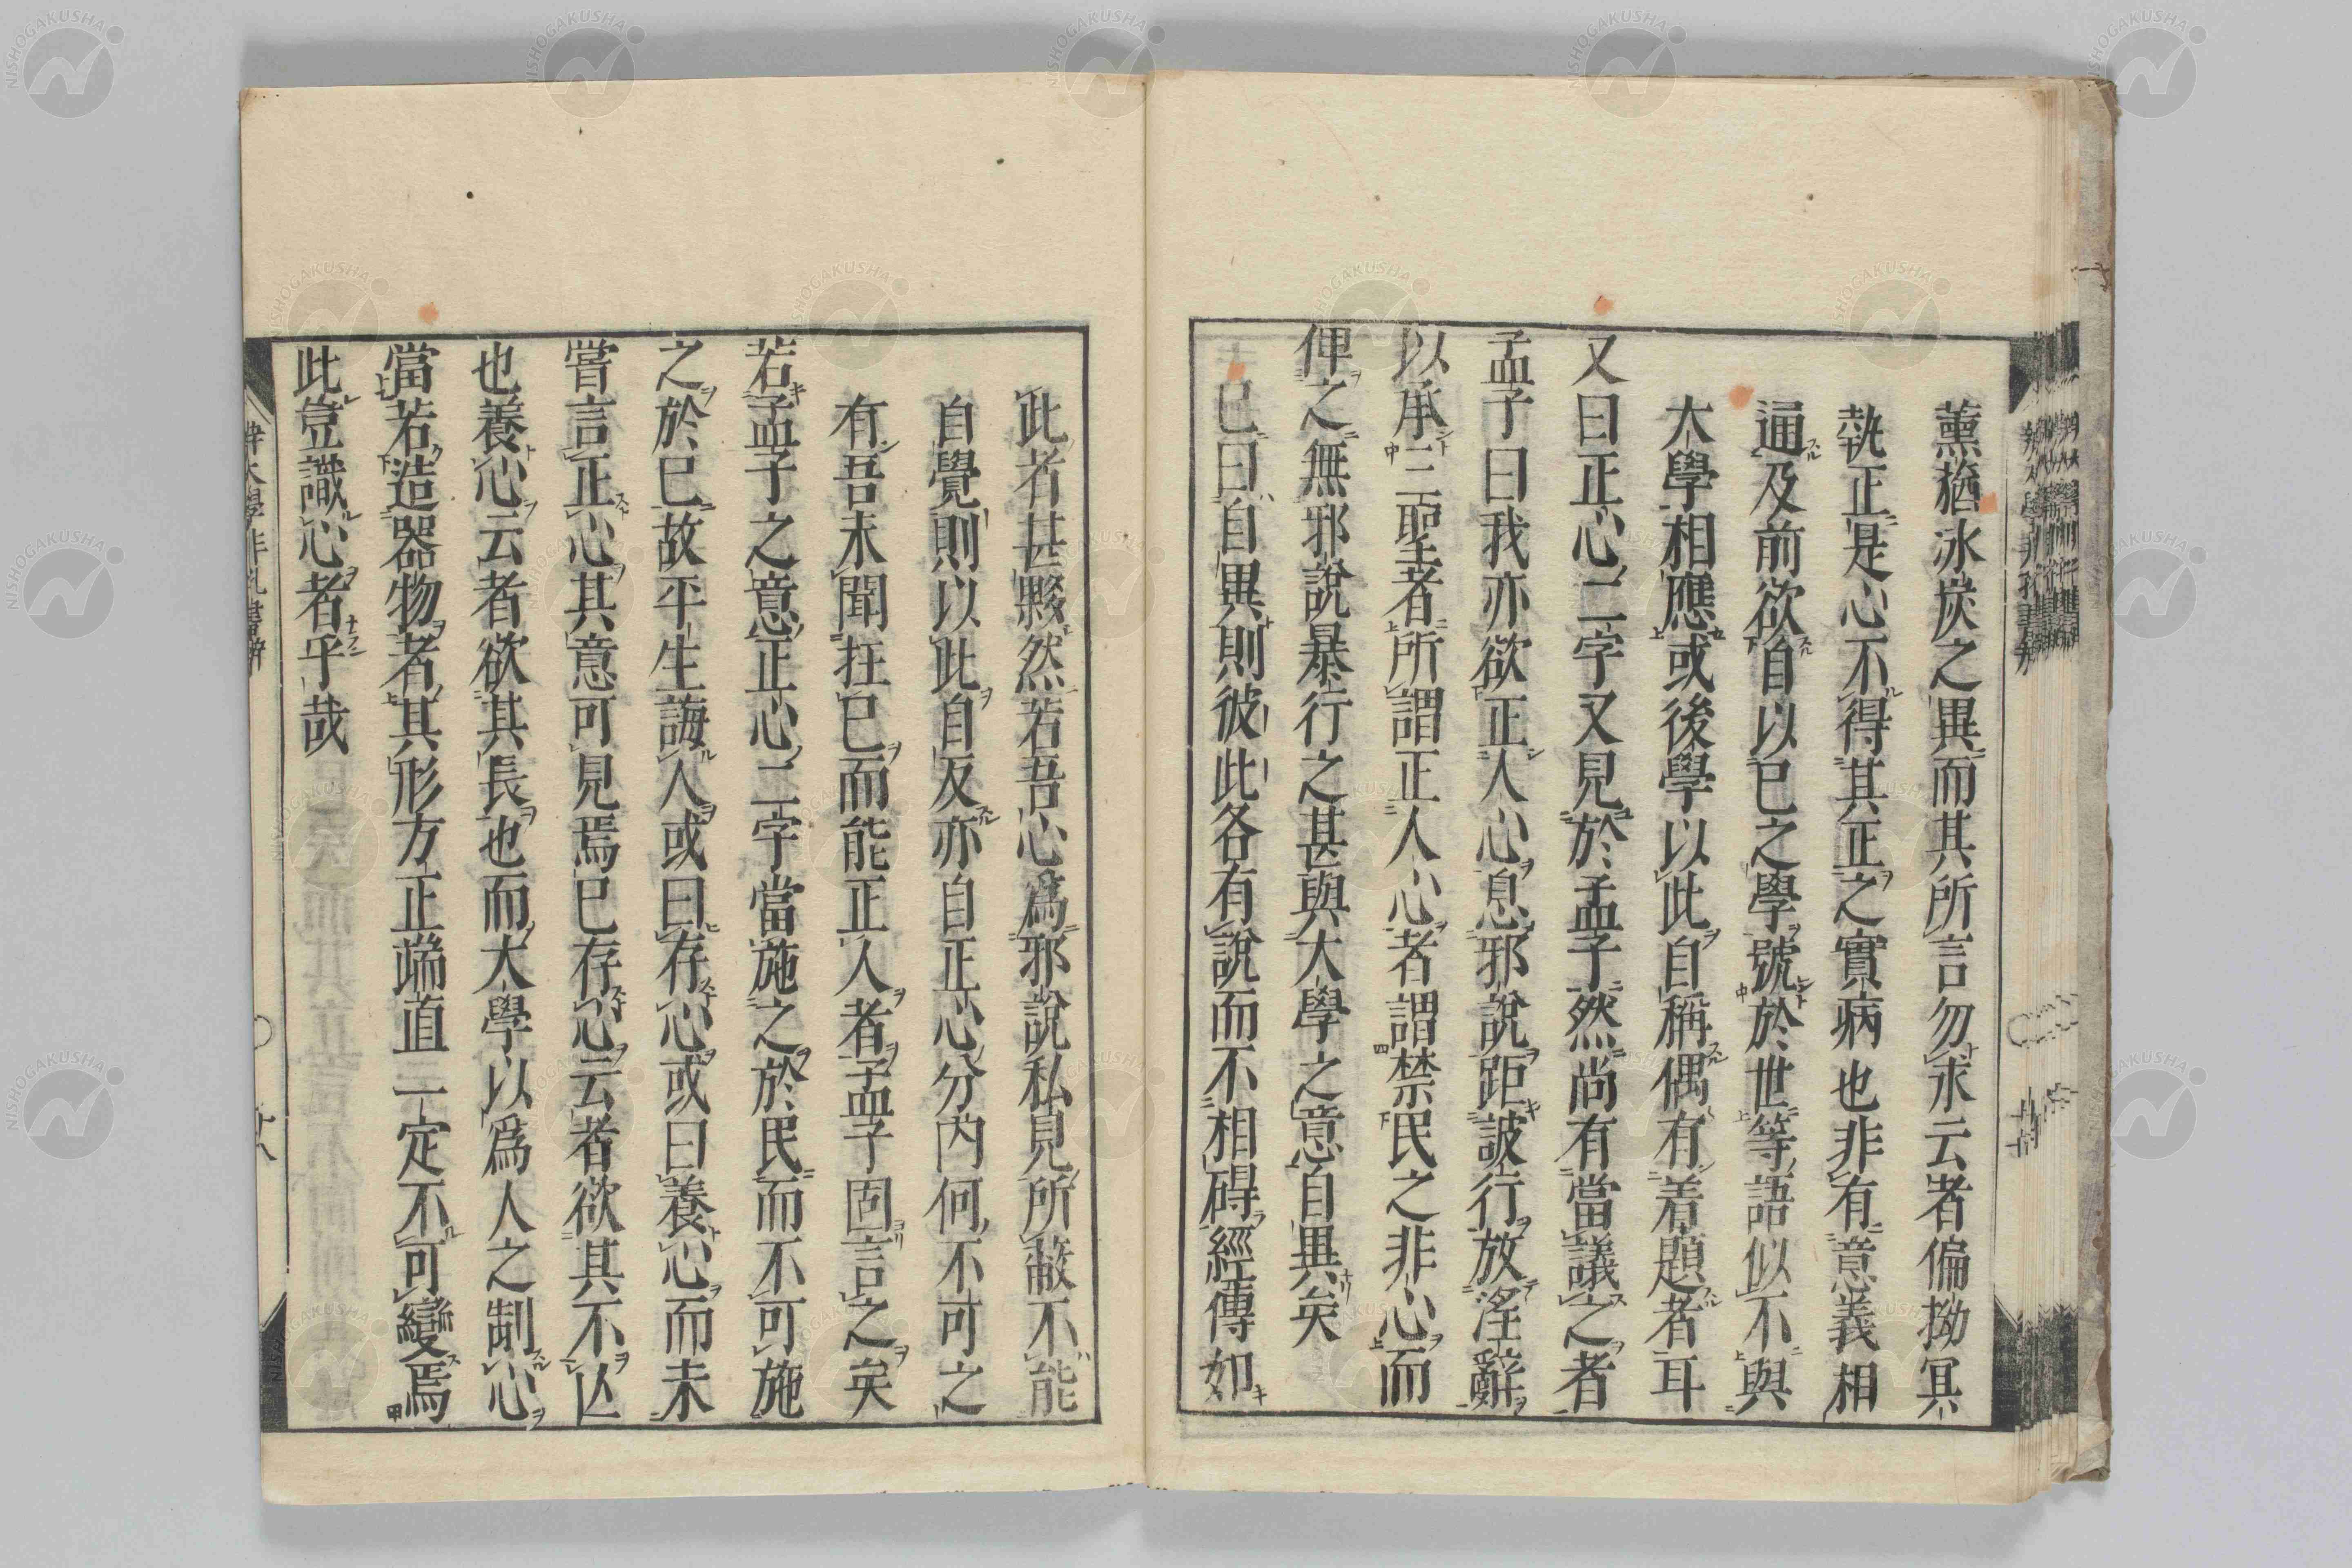 薰蕕冰炭之異而其所言勿求云者偏拗冥
執正是心不得其正之實病也非有意義相
通及前欲自以已之學號於世等語似不與
大學相應或後學以此自稱偶有着題者耳
又曰正心二字又見於孟子然尚有當議之者
孟子曰我亦欲正人心息邪說距詖行放淫辭
以承三聖者所謂正人心者謂禁民之非心而
俾之無邪說暴行之甚與大學之意自異矣
已曰自異則彼此各有說而不相碍經傳如
此者甚夥然若吾心爲邪說私見所蔽不能
自覺則以此自反亦自正心分内何不可之
有吾未聞枉已而能正人者孟子固言之矣
若孟子之意正心二字當施之於民而不可施
之於已故平生誨人或曰存心或曰養心而未
嘗言正心其意可見焉已存心云者欲其不亾
也養心云者欲其長也而大學以爲人之制心
當若造器物者其形方正端直一定不可變焉
此豈識心者乎哉